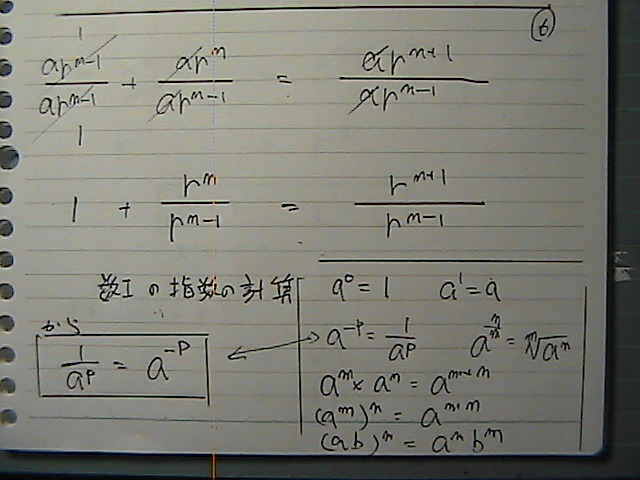 ⑥
1
ar^{n-1}/ar^{n-1} + ar^n/ar^{n-1} = ar^{n+1}/ar^{n-1}
1
1 + r^n/r^{n-1} = r^{n+1}/r^{n-1}
数Ⅰの指数の計算
から
1/a^p = a^{-p}
a^0 = 1 a^1 = a
a^{-p} = 1/a^p a^{n/m} = ^m√a^n
a^m × a^n = a^{m+n}
(a^m)^n = a^{m×n}
(ab)^n = a^n b^n